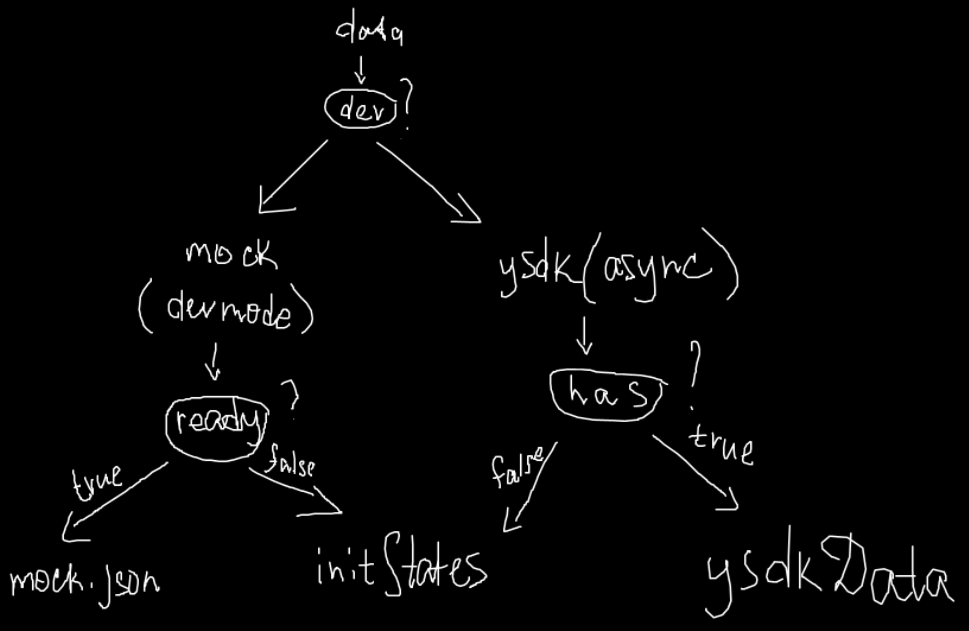 data
dev ?
mock
(devmode)
ysdk(async)
ready ?
has ?
true
false
false
true
mock.json
initStates
ysdkData